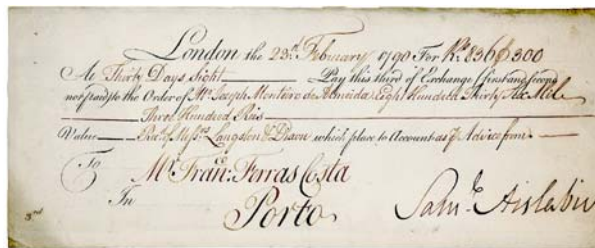 London the 23.d February 1790 For Rs. 836$300
At Thirty Days Sight Pay this third of Exchange first and second
not paid to the Order of Mr. Joseph Monteiro de Almeida Eight Hundred Thirty Six Mil
Three Hundred Reis
Value Rec.d of Mess.rs Langston & Dixon, which place to Account as p Advice from
To Mr. Fran.co Ferras Costa
In Porto
Sam.l Aislabie
3rd